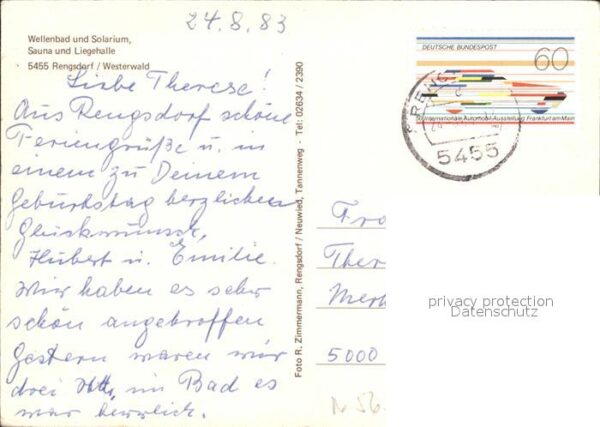 24.8.83
Wellenbad und Solarium,
Sauna und Liegehalle
5455 Rengsdorf / Westerwald
Liebe Therese!
Aus Rengsdorf schöne
Feriengrüße u. in
einem zu Deinem
Geburtstag herzlichen
Glückwunsch,
Hubert u. Emilie.
Wir haben es sehr
schön angetroffen
Gestern waren wir
drei Std, im Bad es
war herrlich.
Foto R. Zimmermann, Rengsdorf / Neuwied, Tannenweg - Tel. 02634 / 2390
DEUTSCHE BUNDESPOST
60
50. Internationale Automobil-Ausstellung Frankfurt am Main
5455
Fra
Ther
5000
privacy protection
Datenschutz